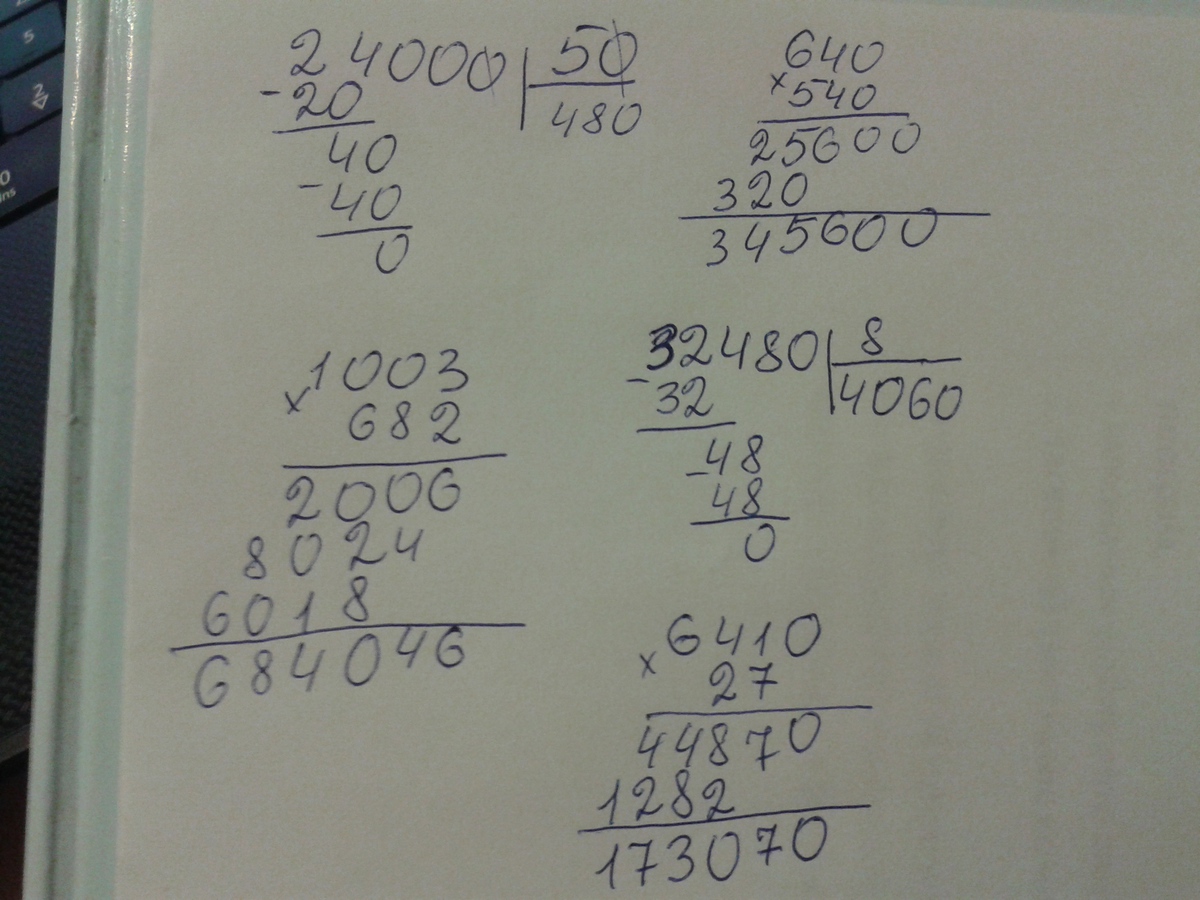 24000 | 50
- 20 | 480
40
- 40
0
640
× 540
25600
320
345600
1003
× 682
2006
8024
6018
684046
32480 | 8
- 32 | 4060
- 48
48
0
6410
× 27
44870
1282
173070
5
2
0
ns